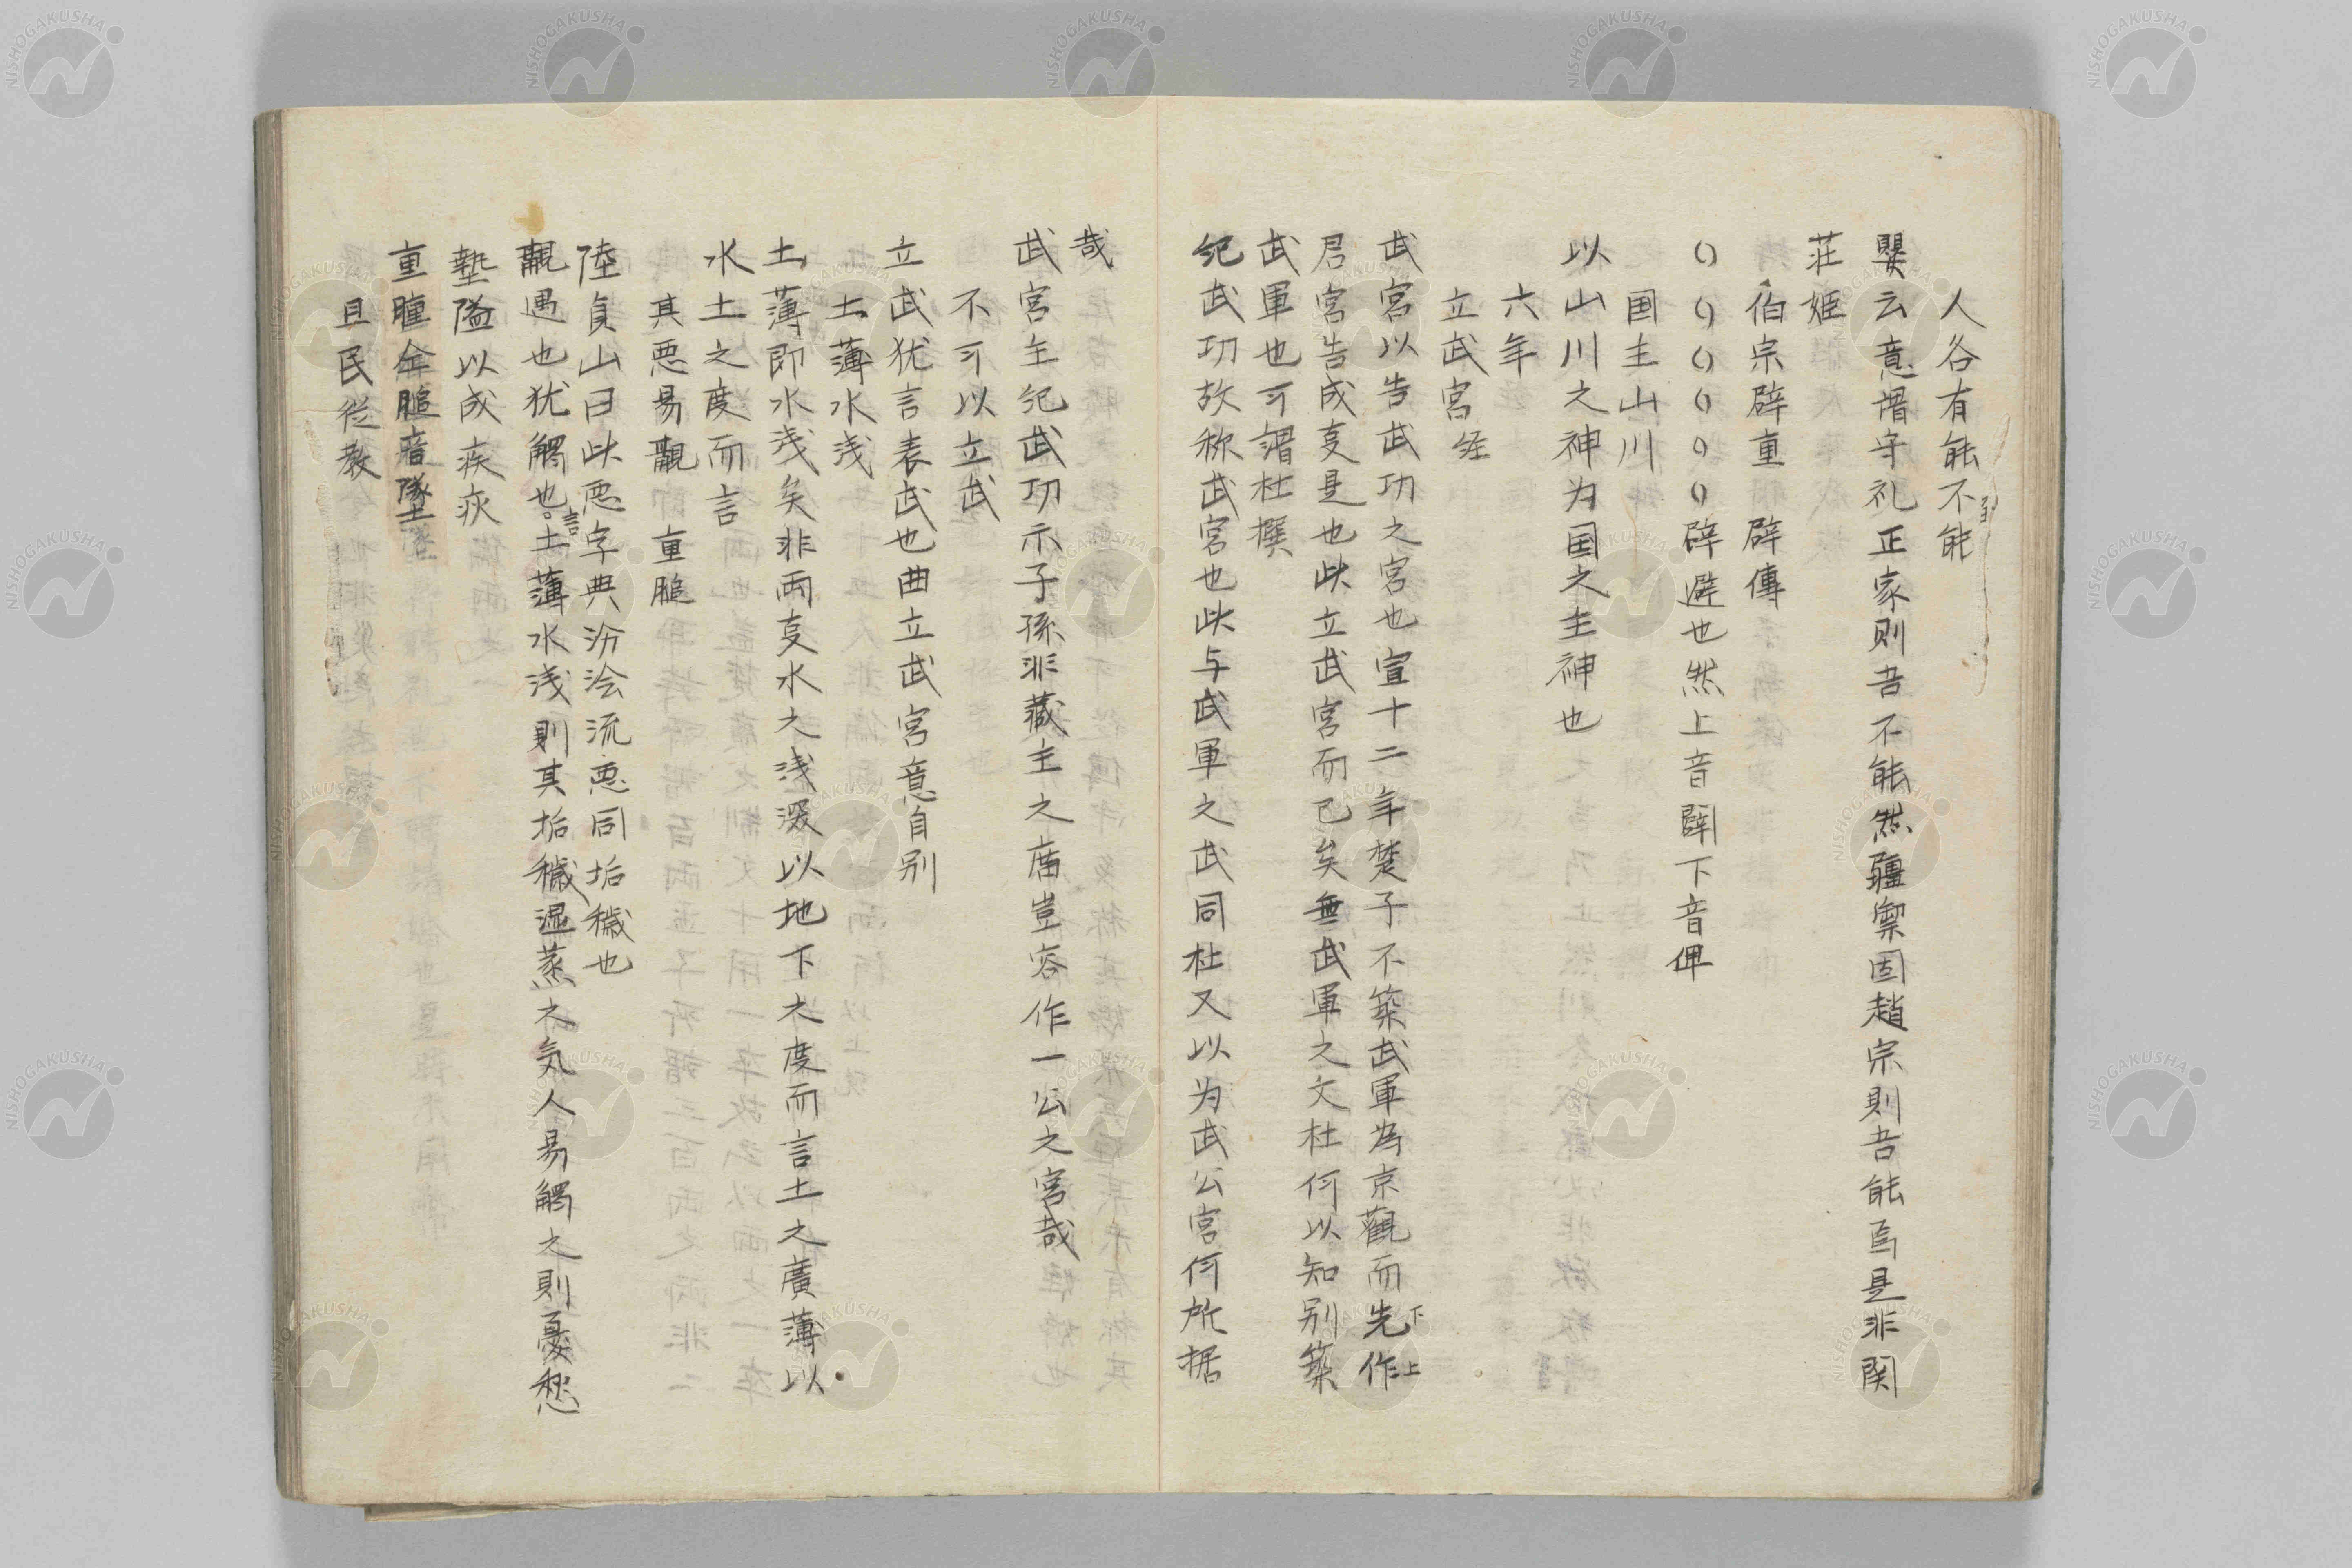 人各有能不能
嬰云意謂守礼正家則吾不能然彊禦固趙宗則吾能焉是非関
莊姫
伯宗辟重 辟傳
〇〇〇〇〇〇辟避也然上音闢下音俾
国主山川
以山川之神为国之主神也
六年
立武宮経
武宮以告武功之宮也宣十二年楚子不築武軍為京觀而先下作上
君宮告成叓是也此立武宮而已矣無武軍之文杜何以知別築
武軍也可謂杜撰
紀武功故称武宮也此与武軍之武同杜又以为武公宮何所据
哉
武宮主紀武功示子孫非藏主之庿豈容作一公之宮哉
不可以立武
立武犹言表武也曲立武宮意自别
土薄水浅
土薄即水浅矣非兩叓水之浅深以地下之度而言土之廣薄以
水土之度而言
其悪易覯 重膇
陸貞山曰此悪字典汾浍流悪同垢穢也
覯遇也犹觸也言土薄水浅則其垢穢湿蒸之気人易觸之則憂愁
墊隘以成疾疢
重腫仝膇音墜
且民従教
NISHOGAKUSHA